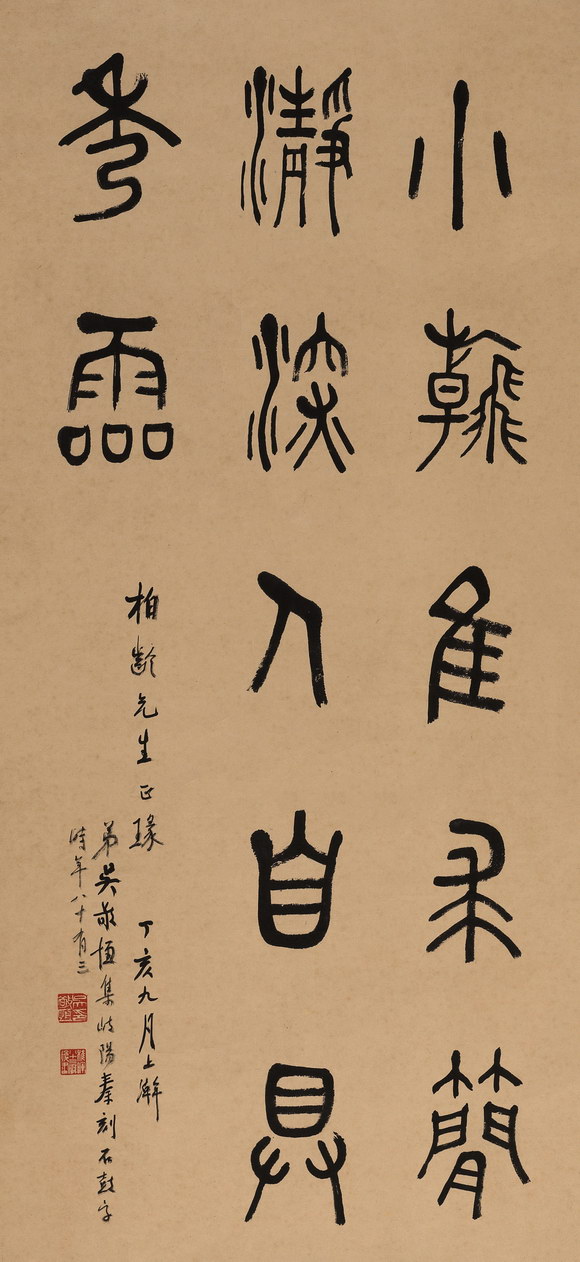 小翰隹求簡
瀞深人自具
秀霝
柏齡先生正瑑 丁亥九月上澣
弟吳敬恆集岐陽秦刻石鼓字
時年八十有三